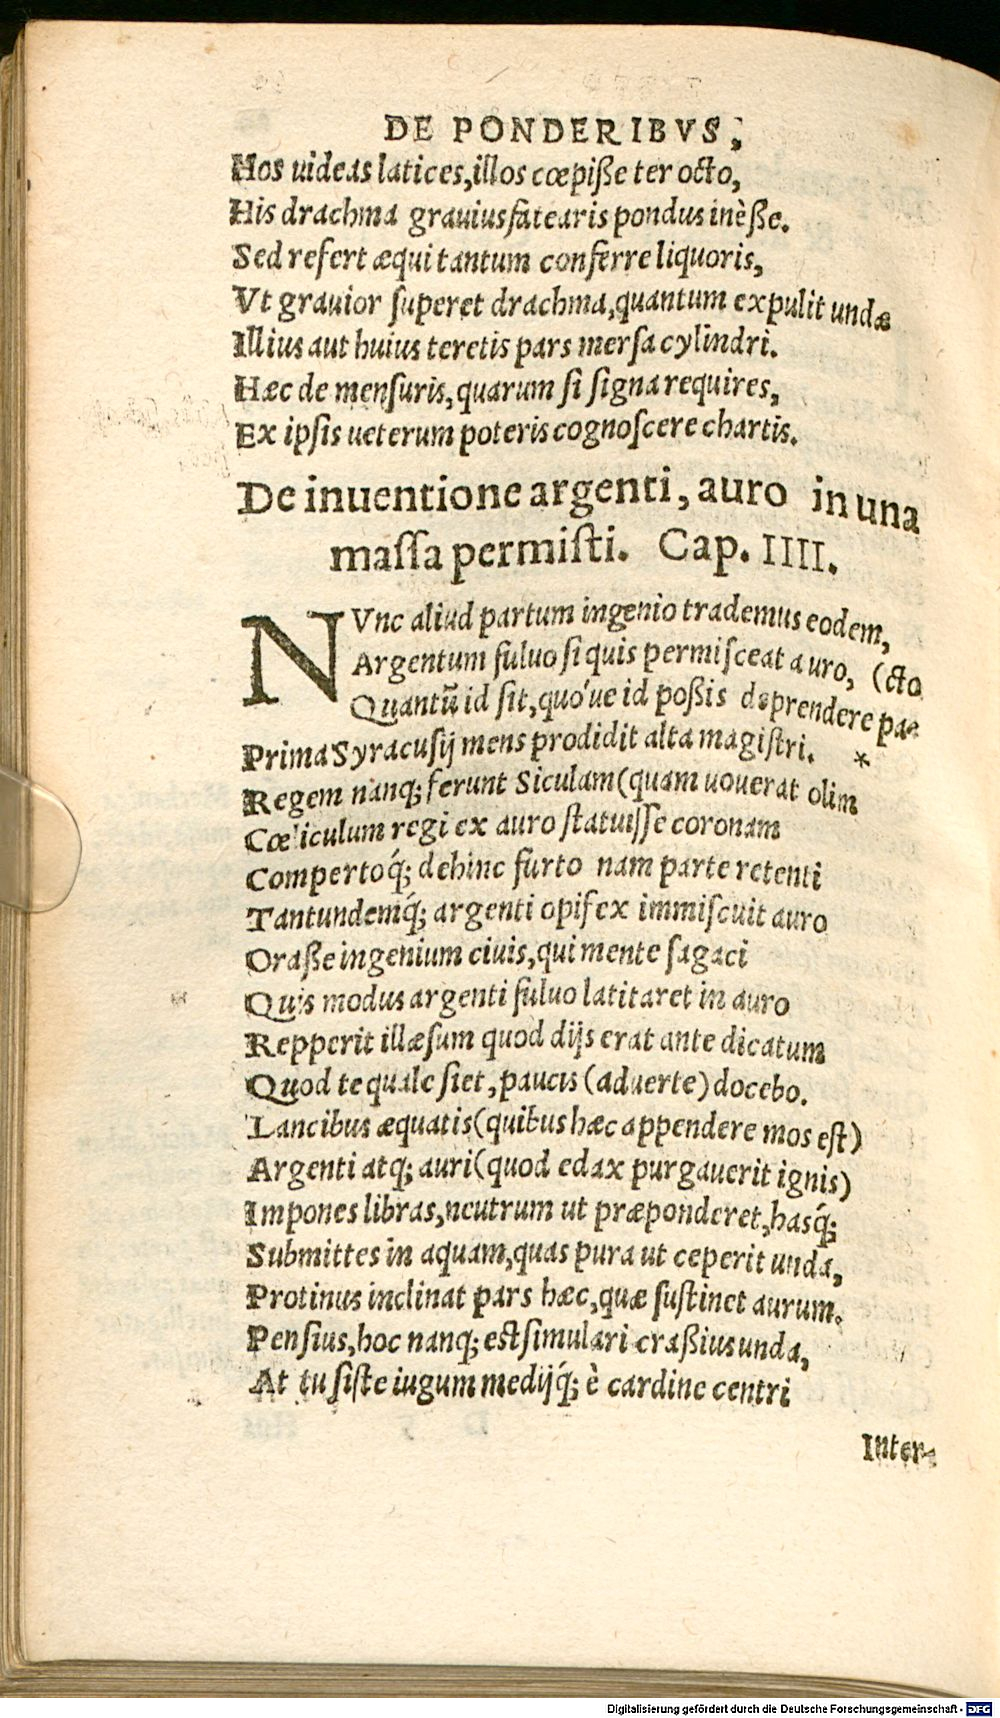 DE PONDERIBVS,
Hos uideas latices, illos cœpiſſe ter octo,
His drachma grauius fatearis pondus inèſſe.
Sed refert æqui tantum conferre liquoris,
Vt grauior ſuperet drachma, quantum expulit undæ
Illius aut huius teretis pars merſa cylindri.
Hæc de menſuris, quarum ſi ſigna requires,
Ex ipſis ueterum poteris cognoſcere chartis.
De inuentione argenti, auro in una
maſſa permiſti. Cap. IIII.
NVnc aliud partum ingenio trademus eodem,
Argentum fuluo ſi quis permiſceat auro, (cto
Quantũ id ſit, quóue id poſſis deprendere pa-
Prima Syracuſij mens prodidit alta magiſtri. *
Regem nanq; ferunt Siculam (quam uouerat olim
Cœliculum regi ex auro ſtatuiſſe coronam
Compertoq́; dehinc furto nam parte retenti
Tantundemq́; argenti opifex immiſcuit auro
Oraſſe ingenium ciuis, qui mente ſagaci
Quis modus argenti fuluo latitaret in auro
Repperit illæſum quod dijs erat ante dicatum
Quod te quale ſiet, paucis (aduerte) docebo.
Lancibus æquatis (quibus hæc appendere mos eſt)
Argenti atq; auri (quod edax purgauerit ignis)
Impones libras, neutrum ut præponderet, hasq́;
Submittes in aquam, quas pura ut ceperit unda,
Protinus inclinat pars hæc, quæ ſuſtinet aurum.
Penſius, hoc nanq; eſt ſimulari craſſius unda,
At tu ſiſte iugum medijq́; è cardine centri
Inter-
Digitalisierung gefördert durch die Deutsche Forschungsgemeinschaft - DFG